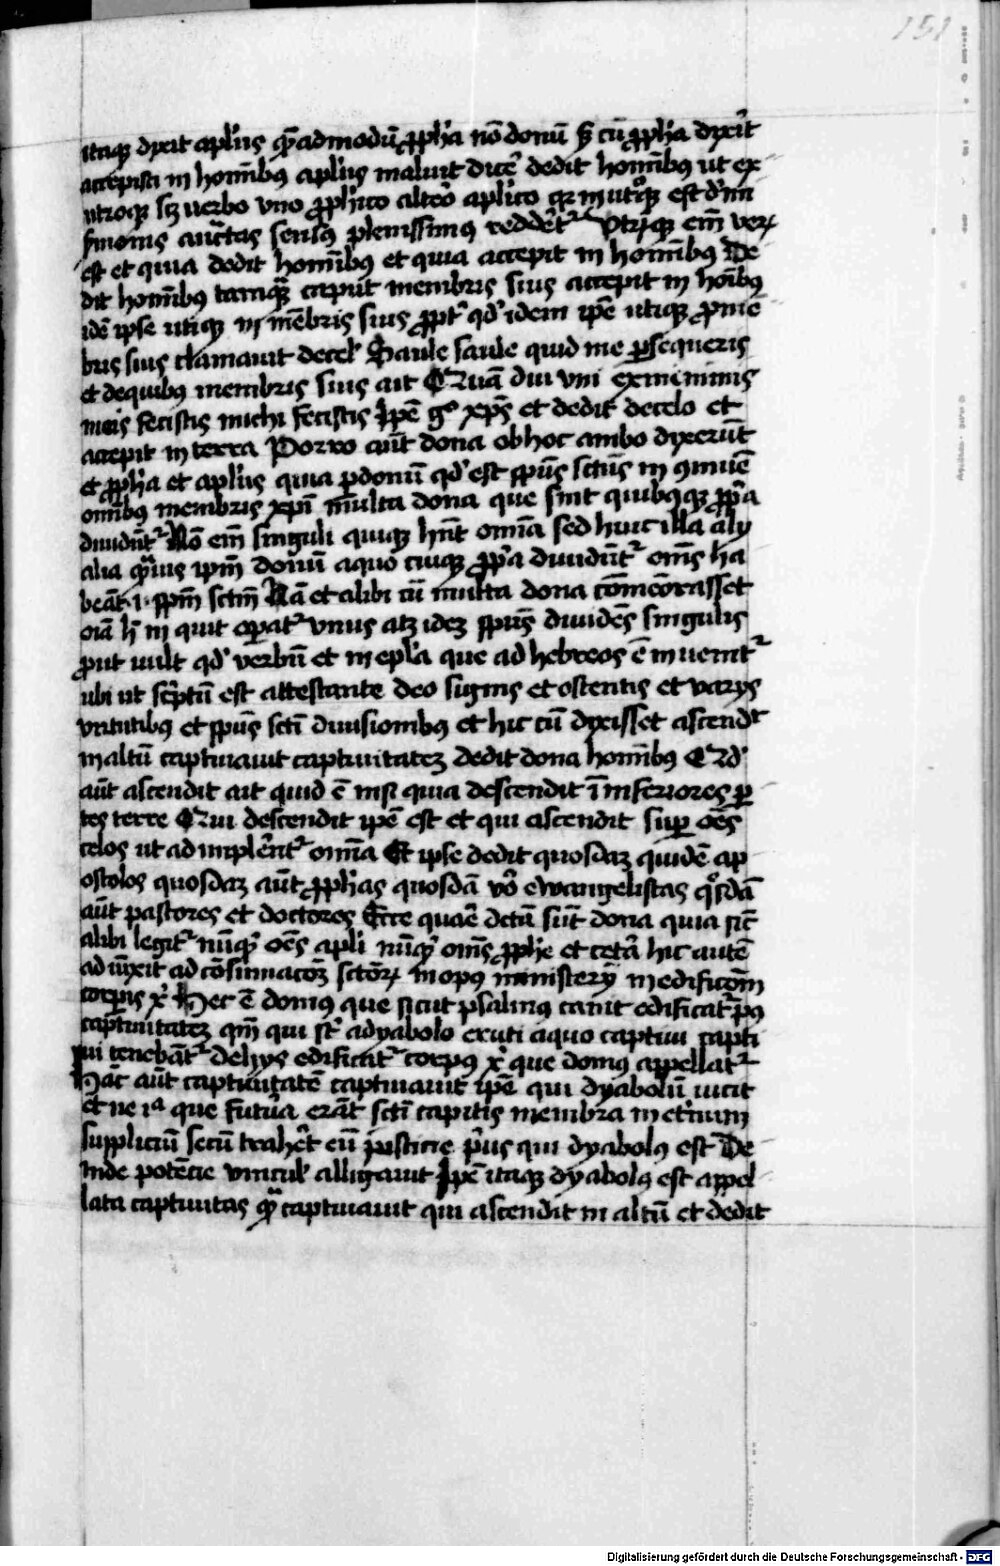 151
itaq; dixit aplūs quēadmodū ꝓph̄a nō donū s; cū ꝓph̄a dixerit
accepisti in homībꝰ aplūs maluit dicē dedit homībꝰ ut ex
utroq; sꝫ verbo vno ꝓphīco altēo aplīco qr in utroq; est dīni
ẜmonis auctītas sensꝰ plenissimꝰ reddētᷣ Vtrūq; em̄ veꝝ
est et quia dedit homībꝰ et quia accepit in homībꝰ De
dit homībꝰ tamq̄ caput membris suis accepit in hoībꝰ
idē ipse utiq; in mēbris suis ꝓpt̄ qd̓ idem ip̄e utiq; ꝓ mē
bris suis clamauit decel̓ Saule saule quid me ꝑsequeris
et dequibꝰ membris suis ait Quā diu vni ex minimis
meis fecistis michi fecistis Ip̄e gͦ xp̄s et dedit decelo et
accepit in terra Porro aūt dona ob hoc ambo dixerūt
et ꝓph̄a et aplūs quia ꝑ donū qd̓ est sp̄us sctūs in ꝯmuē
omībꝰ membris xp̄i multa dona que sint quibꝰq; ꝓp̄a
diuidūtᷣ Nō em̄ singuli quiq; hn̄t omīa sed huic illa alij
alia q̄uis ip̄m donū aquo cuiq; ꝓp̄a diuidūtᷣ om̄s ha
beāt .i. sp̄m sctm̄ Nā et alibi cū multa dona cōmēorasset
oīa h̄ inquit oꝑatᷣ vnus atꝫ idez sp̄us diuidēs singulis
ꝓut uult qd̓ verbū et in epl̄a que ad hebreos ē inuenitᷣ
ubi ut sc̄ptū est attestante deo signis et ostentis et varijs
virtutibꝰ et sp̄us sctī diuisionibꝰ et hic cū dixisset ascendit
in altū captiuauit captiuitatez dedit dona homībꝰ Qd̓
aūt ascendit ait quid ē nisi quia descendit ī inferiores ꝑ
tes terre Qui descendit ip̄e est et qui ascendit suꝑ oēs
celos ut adimplētᷣ omīa Et ipse dedit quosdaz quidē ap
ostolos quosdaz aūt ꝓph̄as quosdā vō ewangelistas qͦsdā
aūt pastores et doctores Ecce quaē dctm̄ sūt dona quia sic̄
alibi legitᷣ nūqͥd oēs apli nūqͥd om̄s ꝓphē et cetā hic autē
adiūxit ad cōsūmacōꝫ sctōꝝ in opꝰ ministerij in edificōm̄
corꝑis xͥ Hec ē domus que sicut psalmꝰ canit edificatᷣ pꝰ
captiuitatez qm̄ qui st̄ adyabolo eruti aquo captiui capti
ui tenebātᷣ Dehijs edificatᷣ corpus xͥ que domus appellatᷣ
Hāc aūt captiuitatē captiuauit ip̄e qui dyabolū uicit
et ne iᵃ que futura erāt sctī capitis membra in et̓num
suppliciū secū trahēt eū iusticie p̓us qui dyabolꝰ est De
inde potēcie vincul̓ alligauit Ip̄e itaq; dyabolꝰ est appel
lata captiuitas q̄ captiuauit qui ascendit in altū et dedit
Digitalisierung gefördert durch die Deutsche Forschungsgemeinschaft - DFG